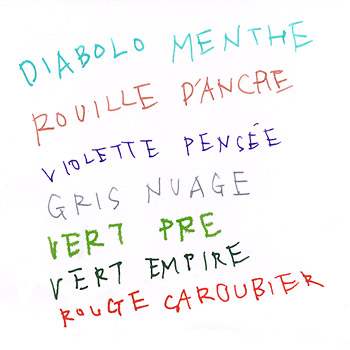 DIABOLO MENTHE
ROUILLE D'ANCRE
VIOLETTE PENSÉE
GRIS NUAGE
VERT PRE
VERT EMPIRE
ROUGE CAROUBIER